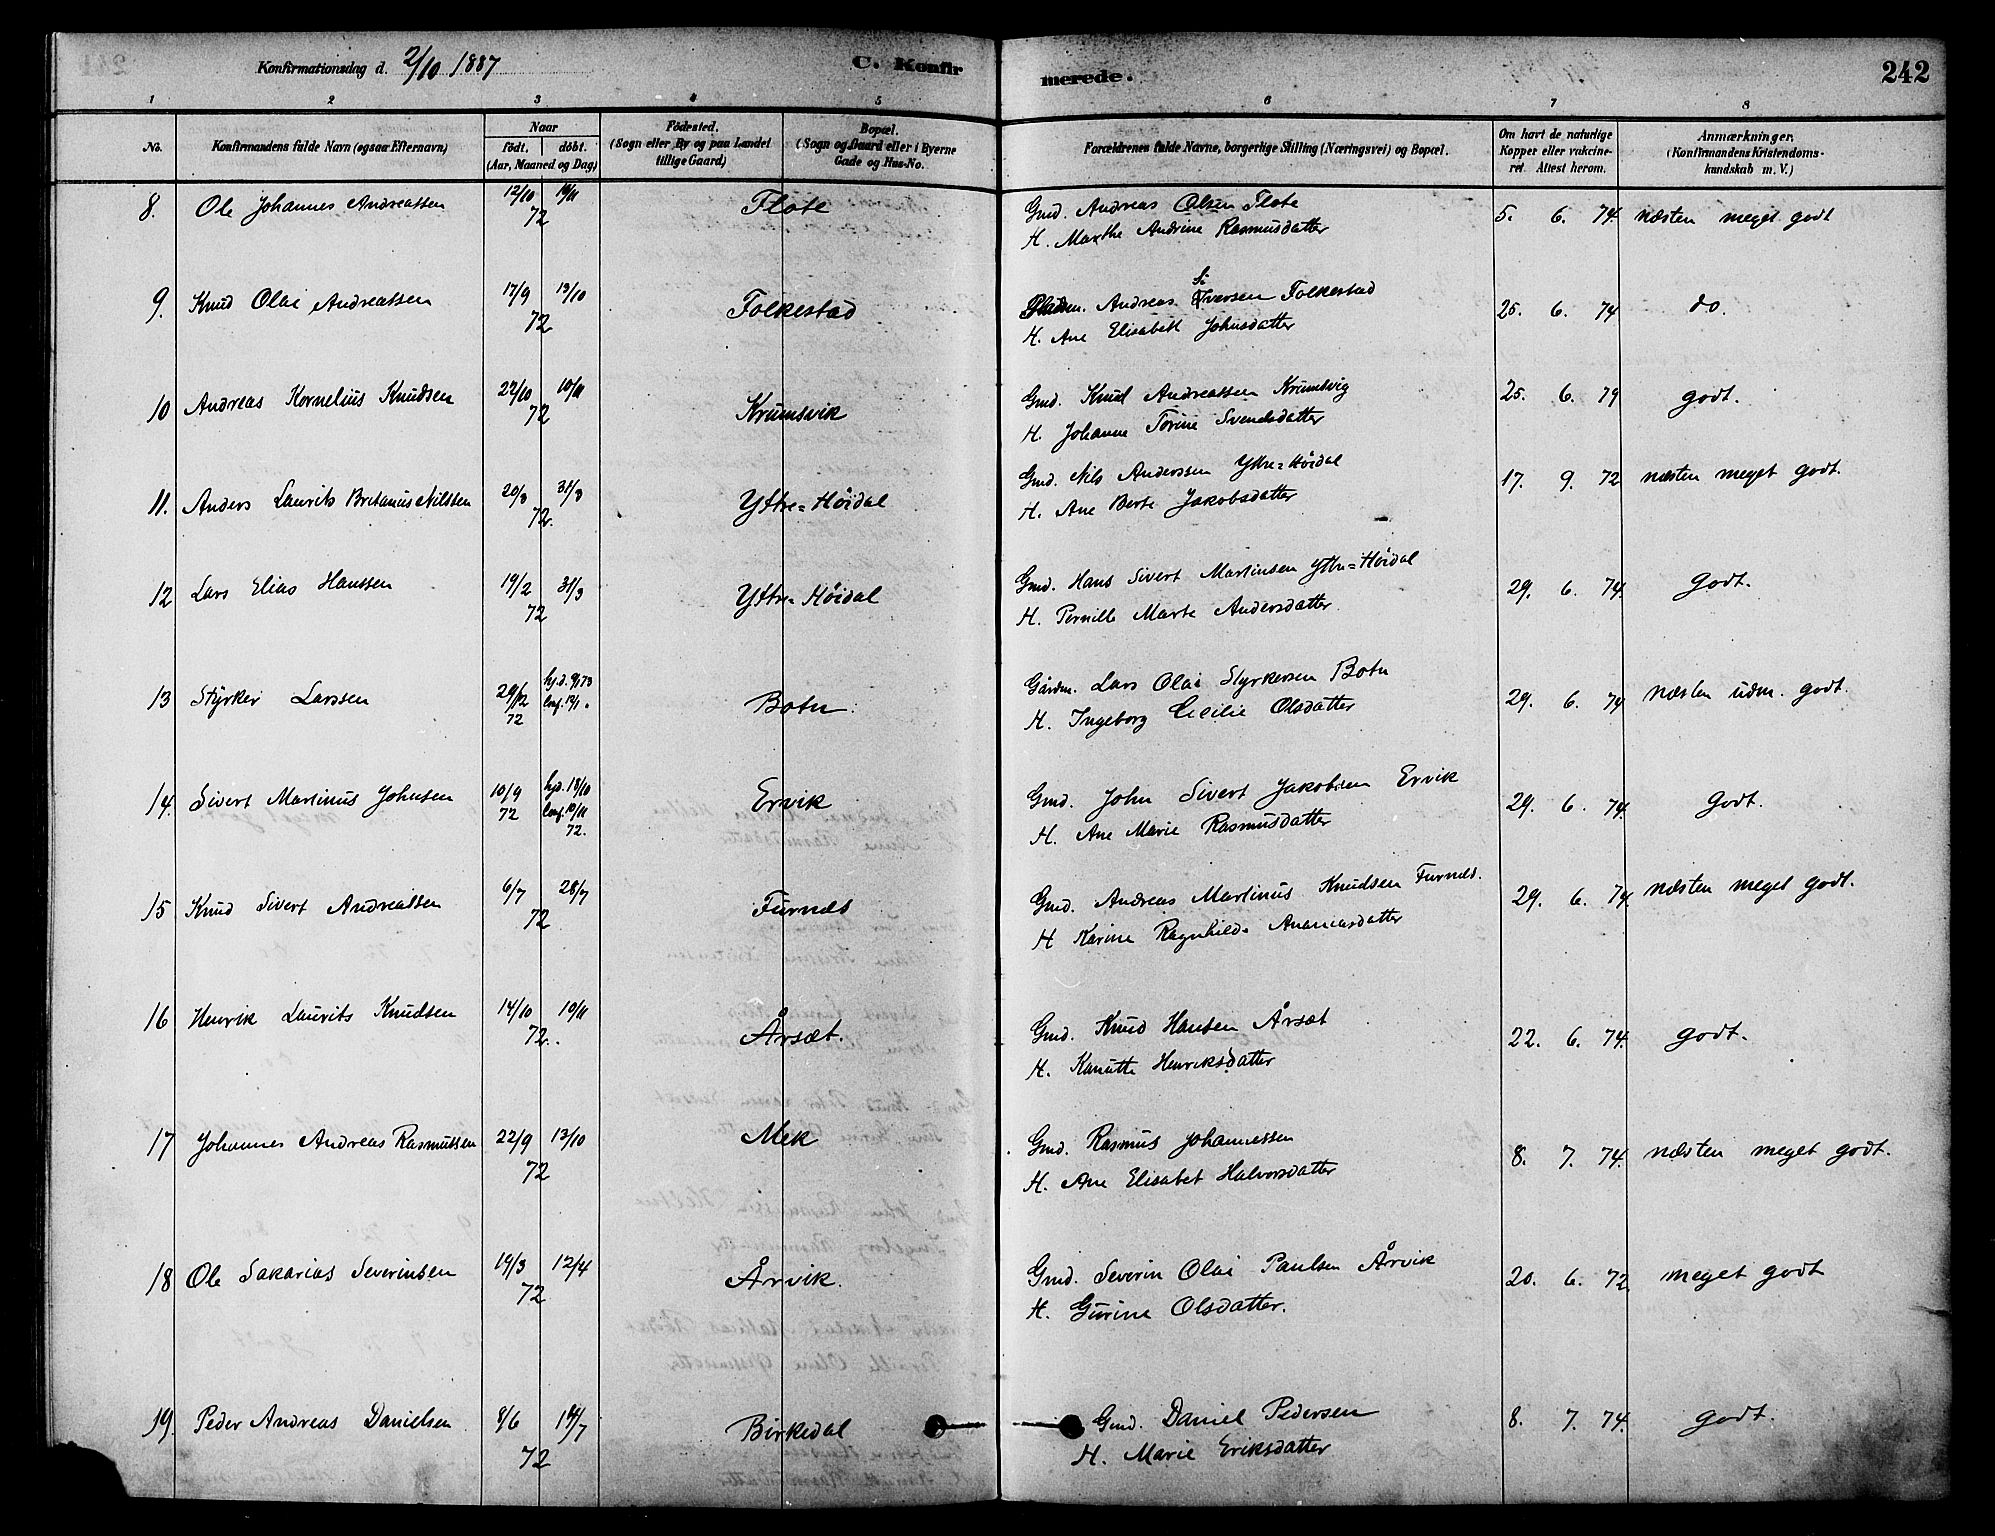 Konfirmationsdag d. 2/10 1887
C. Konfirmerede.
242
1 2 3 4 5 6 7 8
No.
Konfirmandens fulde Navn (ogsaa Efternavn)
Naar
født. døbt.
(Aar, Maaned og Dag)
Fødested.
(Sogn eller By og paa Landet
tillige Gaard)
Bopæl.
(Sogn og Gaard eller i Byerne
Gade og Hus-No.
Forældrenes fulde Navne, borgerlige Stilling (Næringsvei) og Bopæl.
Om havt de naturlige
Kopper eller vakcine-
ret. Attest herom.
Anmærkninger.
(Konfirmandens Kristendoms-
kundskab m. V.)
8. Ole Johannes Andreassen 12/10 72 Flote Gmd. Andreas Olsen Flote 5. 6. 74. næsten meget godt
H. Marthe Andrine Rasmusdatter
9. Knud Olai Andreassen 17/9 13/10 72 Folkestad Andreas Iversen Folkestad 25. 6. 74 do.
H. Ane Elisabeth Johnsdatter
10 Andreas Kornelius Knudsen 27/10 10/11 72 Krumsvik Gmd. Knud Andreassen Krumsvig 25. 6. 79 godt.
H. Johanne Torine Svendsdatter
11. Anders Laurits Britanus Nilssen 20/3 31/3 72. Ytre=Höidal Gmd. Nils Anderssen Ytre=Höidal 17. 9. 72 næsten meget godt.
H. Ane Berte Jakobsdatter
12 Lars Elias Hanssen 19/2 31/3 72 Ytre=Höidal Gmd. Hans Sivert Martinsen Ytre=Höidal 29. 6. 74. godt.
H. Pernille Marte Andersdatter
13 Styrker Larssen 29/12 72 hj.d. 9/1 73 conf. 19/1 Botn Gårdm. Lars Olai Styrkersen Botn 29. 6. 74 næsten udm. godt.
H. Ingeborg Cecilie Olsdatter
14. Sivert Martinus Johnsen 10/9 72 hjd. 18/10 conf. 10/11 72. Ervik Gmd. John Sivert Jakobsen Ervik 29. 6. 74. godt.
H. Ane Marie Rasmusdatter
15 Knud Sivert Andreassen 6/7 28/7 72 Furnes Gmd. Andreas Martinus Knudsen Furnes. 29. 6. 74. næsten meget godt.
H Karine Ragnhilda Ananiasdatter
16 Henrik Laurits Knudsen 14/10 10/11 72. Årsæt. Gmd. Knud Hansen Årsæt 22. 6. 74. godt.
H. Kanutte Henriksdatter
17 Johannes Andreas Rasmussen 22/9 13/10 72 Mek Gmd. Rasmus Johannessen 8. 7. 74. næsten meget godt.
H. Ane Elisabet Halvorsdatter
18 Ole Sakarias Severinsen 14/3 12/4 72 Årvik. Gmd. Severin Olai Paulsen Årvik 20. 6. 72. meget godt
H. Gurine Olsdatter.
19. Peder Andreas Danielsen 9/6 14/7 72 Birkedal Gmd. Daniel Pedersen 8. 7. 74. godt.
H. Marie Eriksdatter